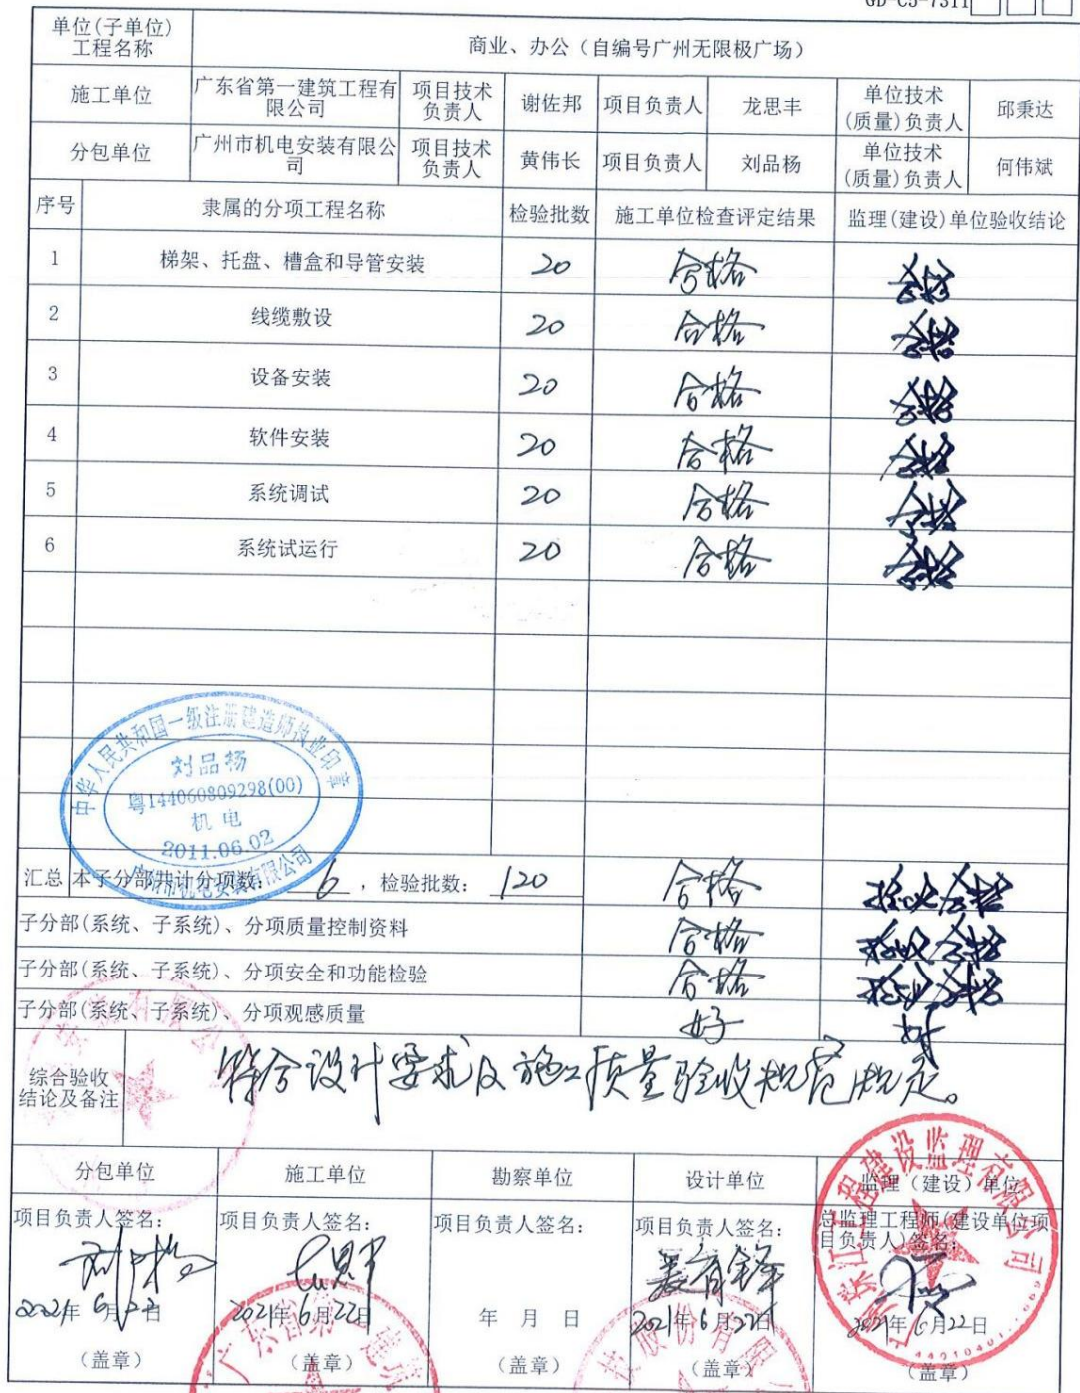 GD-C5-7311
单位(子单位)
工程名称
商业、办公（自编号广州无限极广场）
施工单位
广东省第一建筑工程有
限公司
项目技术
负责人
谢佐邦
项目负责人
龙思丰
单位技术
(质量)负责人
邱秉达
分包单位
广州市机电安装有限公
司
项目技术
负责人
黄伟长
项目负责人
刘品杨
单位技术
(质量)负责人
何伟斌
序号 隶属的分项工程名称 检验批数 施工单位检查评定结果 监理(建设)单位验收结论
1 梯架、托盘、槽盒和导管安装 20 合格 合格
2 线缆敷设 20 合格 合格
3 设备安装 20 合格 合格
4 软件安装 20 合格 合格
5 系统调试 20 合格 合格
6 系统试运行 20 合格 合格
中华人民共和国一级注册建造师执业印章
刘品杨
粤144060809298(00)
机电
2011.06.02
广州市机电安装有限公司
汇总 本子分部共计分项数: 6 ，检验批数: 120 合格 验收合格
子分部(系统、子系统)、分项质量控制资料 合格 验收合格
子分部(系统、子系统)、分项安全和功能检验 合格 验收合格
子分部(系统、子系统)、分项观感质量 好 好
综合验收
结论及备注
符合设计要求及施工质量验收规范规定。
分包单位 施工单位 勘察单位 设计单位 监理（建设）单位
项目负责人签名: 项目负责人签名: 项目负责人签名: 项目负责人签名: 总监理工程师(建设单位项
目负责人)签名:
刘品杨 龙思丰
年 月 日
2021年6月22日 2021年6月22日 2021年6月22日
（盖章） （盖章） （盖章） （盖章） （盖章）
珠江工程建设监理有限公司